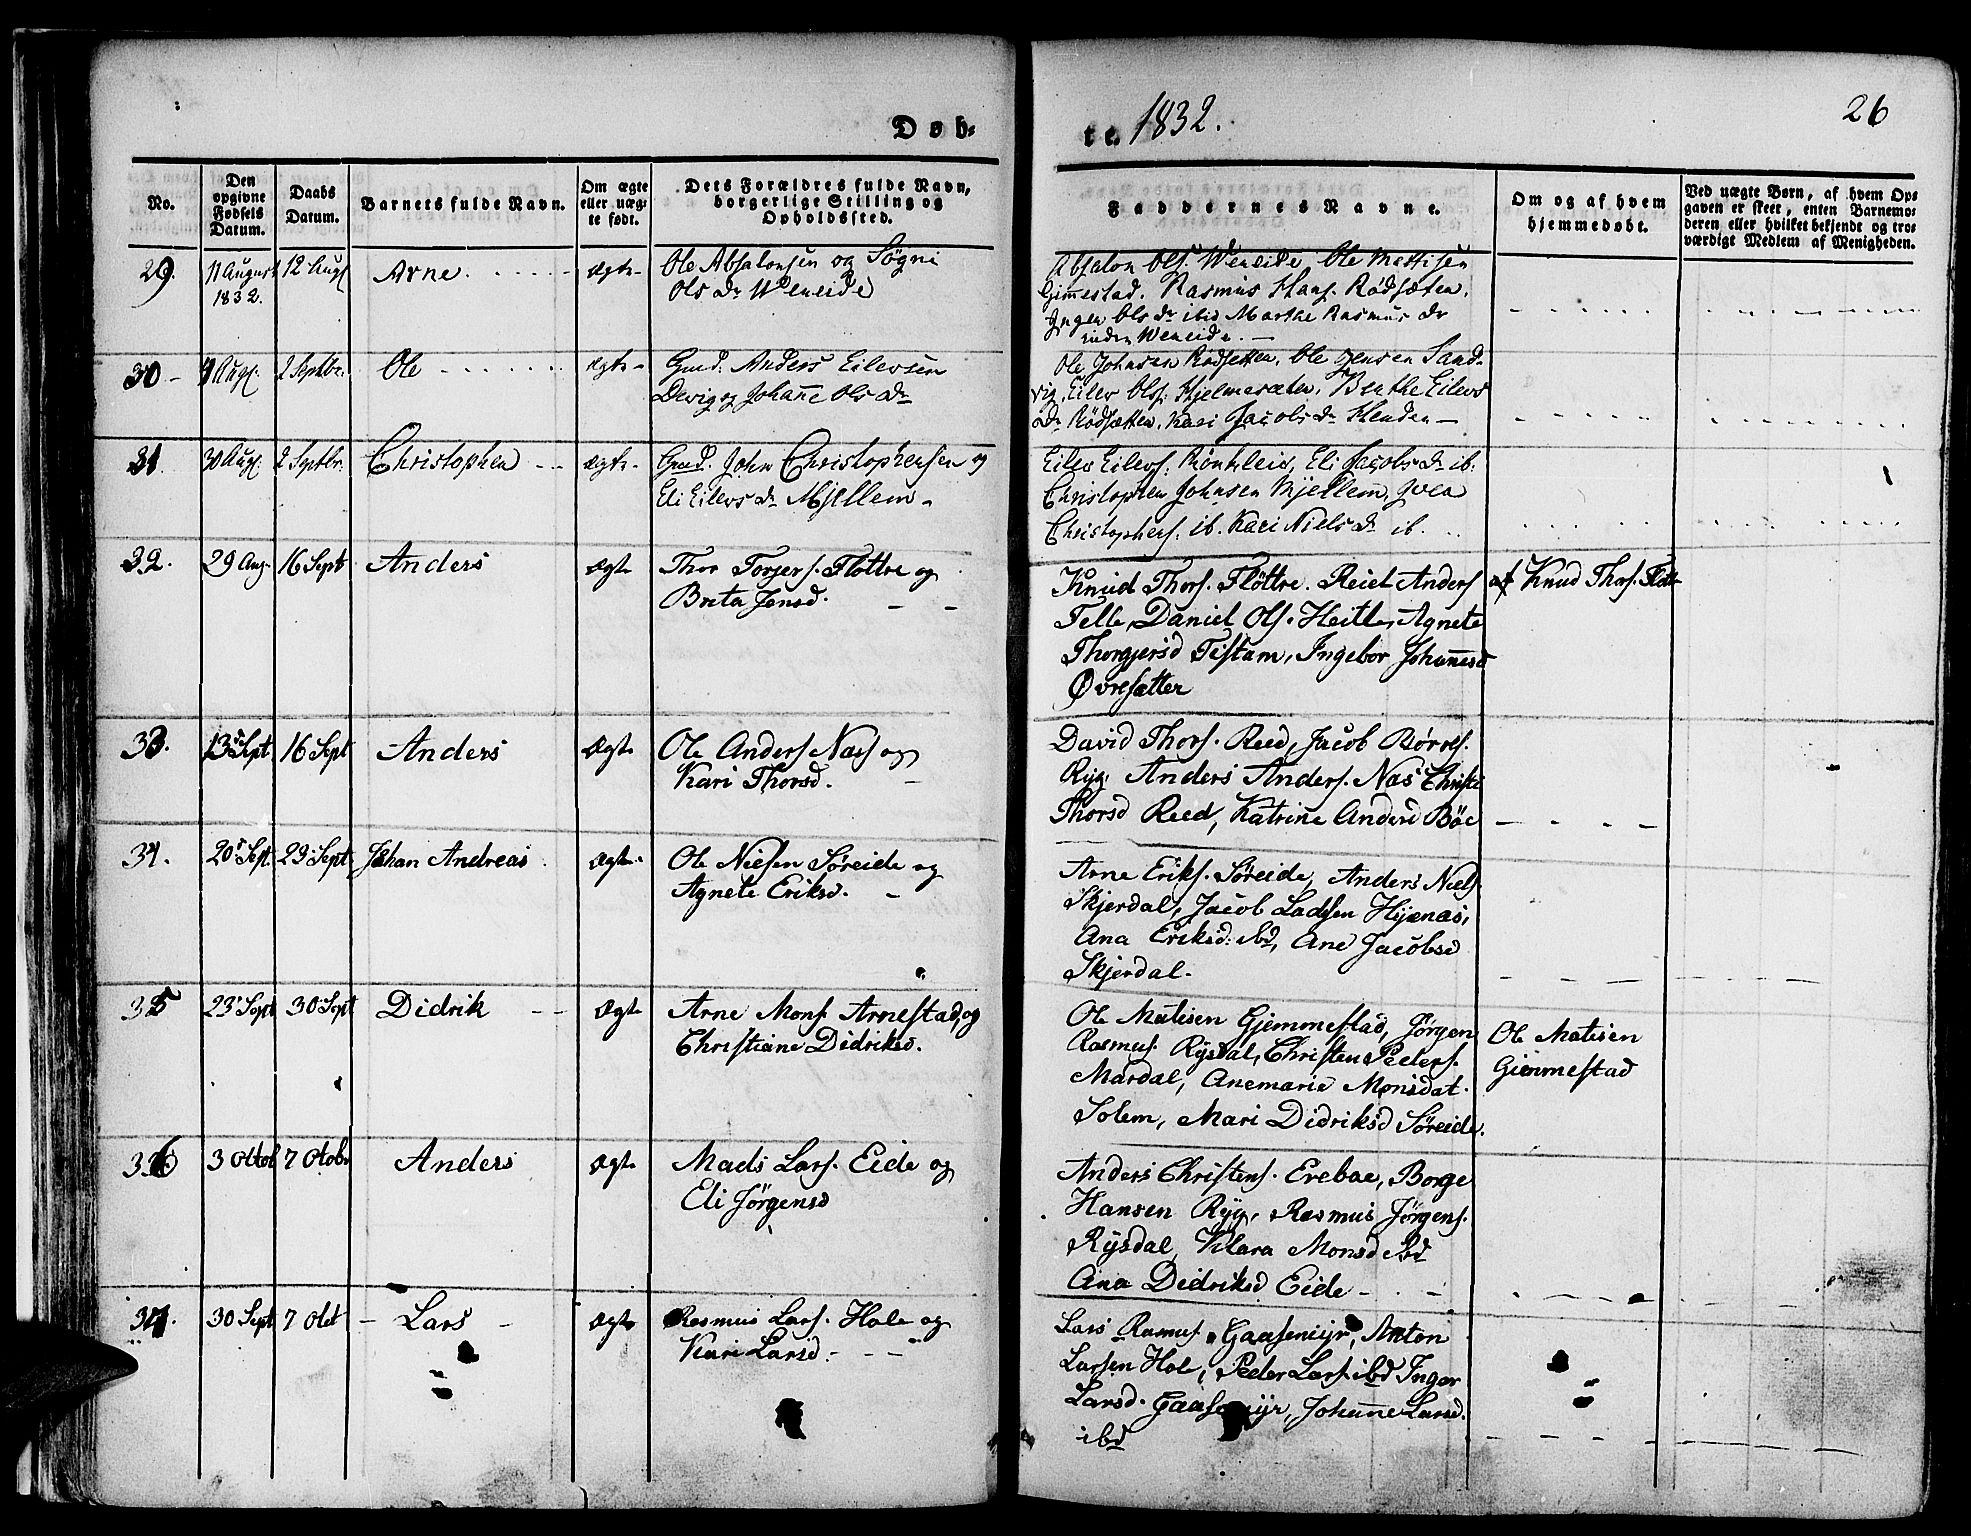 Døb-
te. 1832.
26
No.
Den opgivne Fødsels Datum.
Daabs Datum.
Barnets fulde Navn.
Om ægte eller uægte født.
Dets Forældres fulde Navn, borgerlige Stilling og Opholdssted.
Faddernes Navne.
Om og af hvem hjemmedøbt.
Ved uægte Børn, af hvem Opgaven er skeet, enten Barnemoderen eller hvilket bekjendt og troværdigt Medlem af Menigheden.
29. 11 August 12 Augs Arne. Ægte Ole Absalonsen og Søgni
1832. Ols Dr Weneide
Absalon Ols. Weneide, Ole Mattisen
Gimmestad. Rasmus Hans. Rödsæten.
Ingen Ols dr ibid Marthe Rasmus dr
inden Weneide.
30 Augs. 2 Septbr. Ole Ægte Gmd. Anders Eilevsen
Devig og Johanne Ols Dr
Ole Johnsen Rödsetten, Ole Jensen Sand-
vig, Eilev Ols. Hjelmesæten, Berthe Eilevs
Dr. Rödsætten, Kari Jacobs dr Henden
31. 30 Augs. 2 Septbr. Christophen Ægte Gmd. John Christophersen og
Eli Eilevs dr Mjellem
Eilev Eilevs. Rönhleid, Eli Jacobs dr ib.
Christophen Johnsen Mjellem, Iven
Christophers. ib. Kari Niels dr ib.
32. 29 Aug. 16 Sept Anders Ægte Thor Torjers. Flöttre og
Breta Jensd.
Knud Thors. Flöttre. Reiel Anders
Felle, Daniel Ols. Heitle, Agnete
Thorgjersd Tistam, Ingebor Johannesd
Øvresætter
af Knud Thors. Fløtt
33. 13 Sept 16 Sept Anders Ægte Ole Anders. Næs og
Kari Thorsd.
David Thors. Reed, Jacob Børres.
Ryg, Anders Anders. Næs Christi
Thorsd Reed, Katrine Andersd Böe
34. 20 Sept. 23 Sept Johan Andreas Ægte Ole Nielsen Søreide og
Agnete Eriksd.
Arne Eriks. Søreide, Anders Niels.
Skjerdal, Jacob Ladsen Hjenæs,
Ana Eriksd: ibd, Ane Jacobsd
Skjerdal.
35 23 Sept 30 Sept Didrik Ægte Arne Mons. Arnestad, og
Christiane Didriksd.
Ole Matisen Gjemmestad, Jörgen
Rasmus. Rysdal, Christen Peders.
Mardal, Anemarie Monsdat.
Solem, Mari Didriksd Søreide.
Ole Matisen
Gienmestad
36 3 Octob 7 Otobr Anders Ægte Mads Lars. Eide og
Eli Jörgensd
Anders Christens. Evebøe, Borge
Hansen Ryg, Rasmus Jörgens.
Rysdal, Klara Monsd ibd
Ana Didriksd Eide
37. 30 Sept 7 Otet Lars Ægte Rasmus Lars. Hole og
Kari Larsd.
Lars Rasmus. Gaasemyr, Anton
Larsen Hole, Peder Lars. ibd Inger
Larsd. Gaasemyr, Johanne Larsd.
ibd